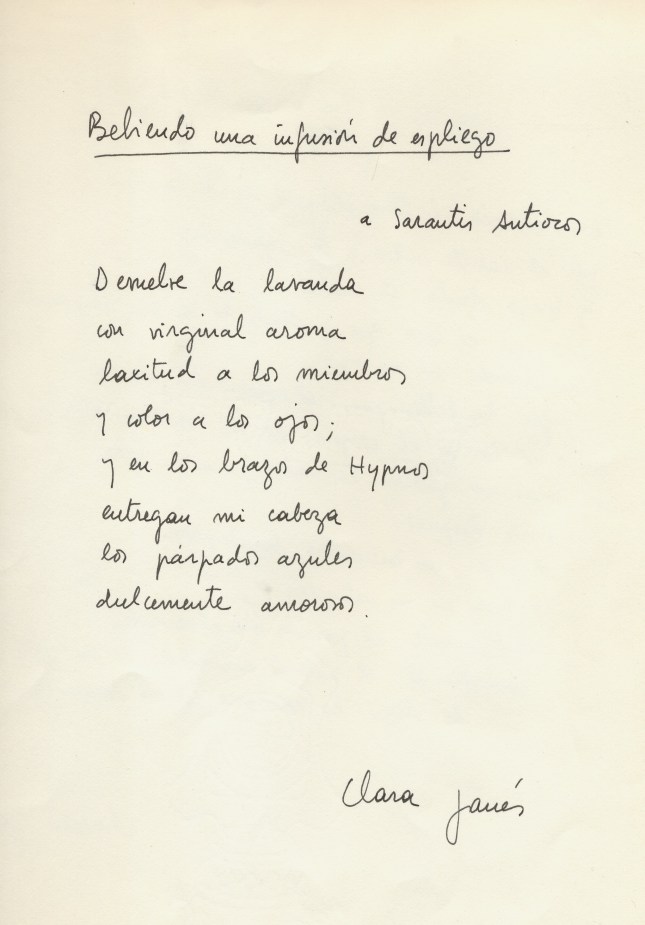 Bebiendo una infusión de espliego
a Sarantis Antiocos
Devuelve la lavanda
con virginal aroma
laxitud a los miembros
y color a los ojos;
y en los brazos de Hypnos
entregan mi cabeza
los párpados azules
dulcemente amorosos.
Clara Janés